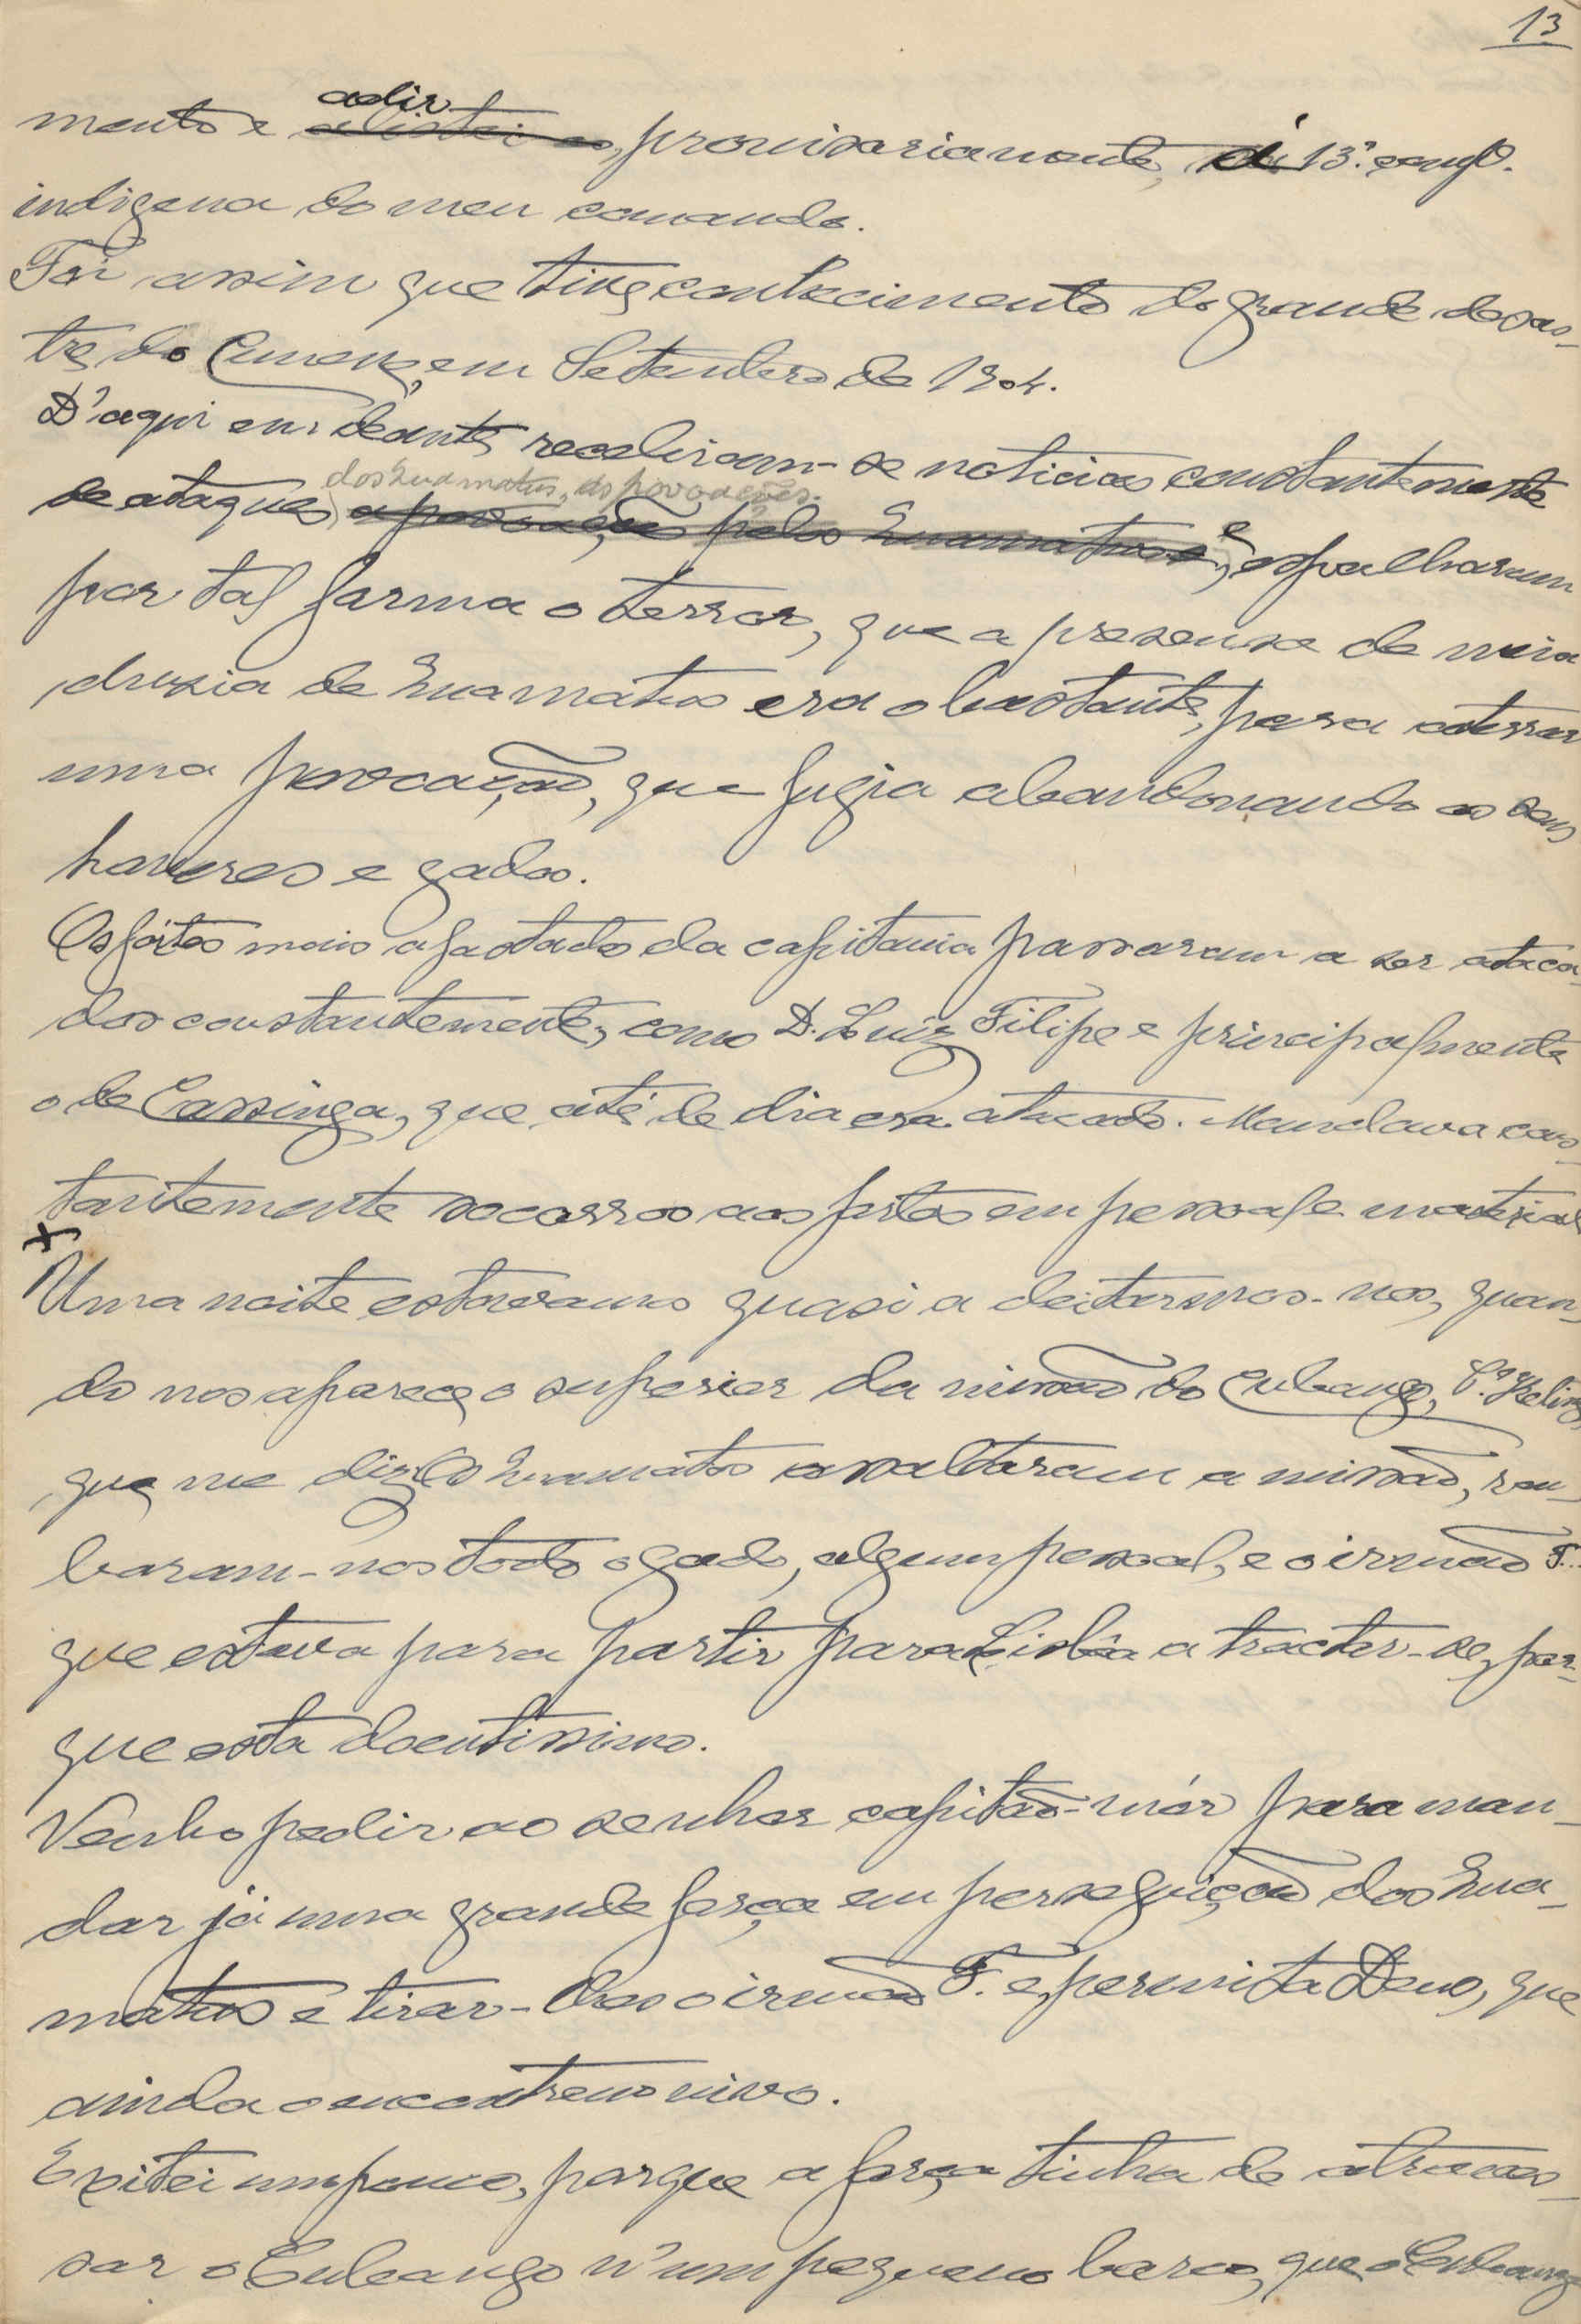 13
mento e adir alistei-os, provisoriamente, á 13ª comp.ª
indigena do meu comando.
Foi assim que tive conhecimento do grande desas-
tre do Cunene, em Setembro de 1904.
D'aqui em deante receberam-se noticias constantemente
dos Cuamatus, ás povoações.
de ataques a povoações pelos Cuamatus e, espalharam
por tal forma o terror, que a presensa de meia
duzia de Cuamatus era o bastante, para aterrar
uma povoação, que fugia abandonando os seus
haveres e gados.
Os fortes mais afastados da capitania passaram a ser ataca-
dos constantemente, como D. Luiz Filipe e principalmente
o de Cassinga, que até de dia era atacado. Mandava cons-
tantemente socorros aos fortes em pessoal e material
x
Uma noite estavamos quasi a deitarmos-nos, quan-
do nos aparece o superior da missão do Cubango,
que me diz: Os Cuamatus assaltaram a missão, rou-
baram-nos todo o gado, algum pessoal, e o irmão F...
que estava para partir para Lisbôa a tractar-se, por-
que está doentissimo.
Venho pedir ao senhor capitão-mór para man-
dar já uma grande força em perseguição dos Cua-
matus e tirar-lhes o irmão F. e, permita Deus, que
ainda o encontremos vivo.
Exitei um pouco, porque a força tinha de atraves-
sar o Cubango n'um pequeno barco, que o Cubango